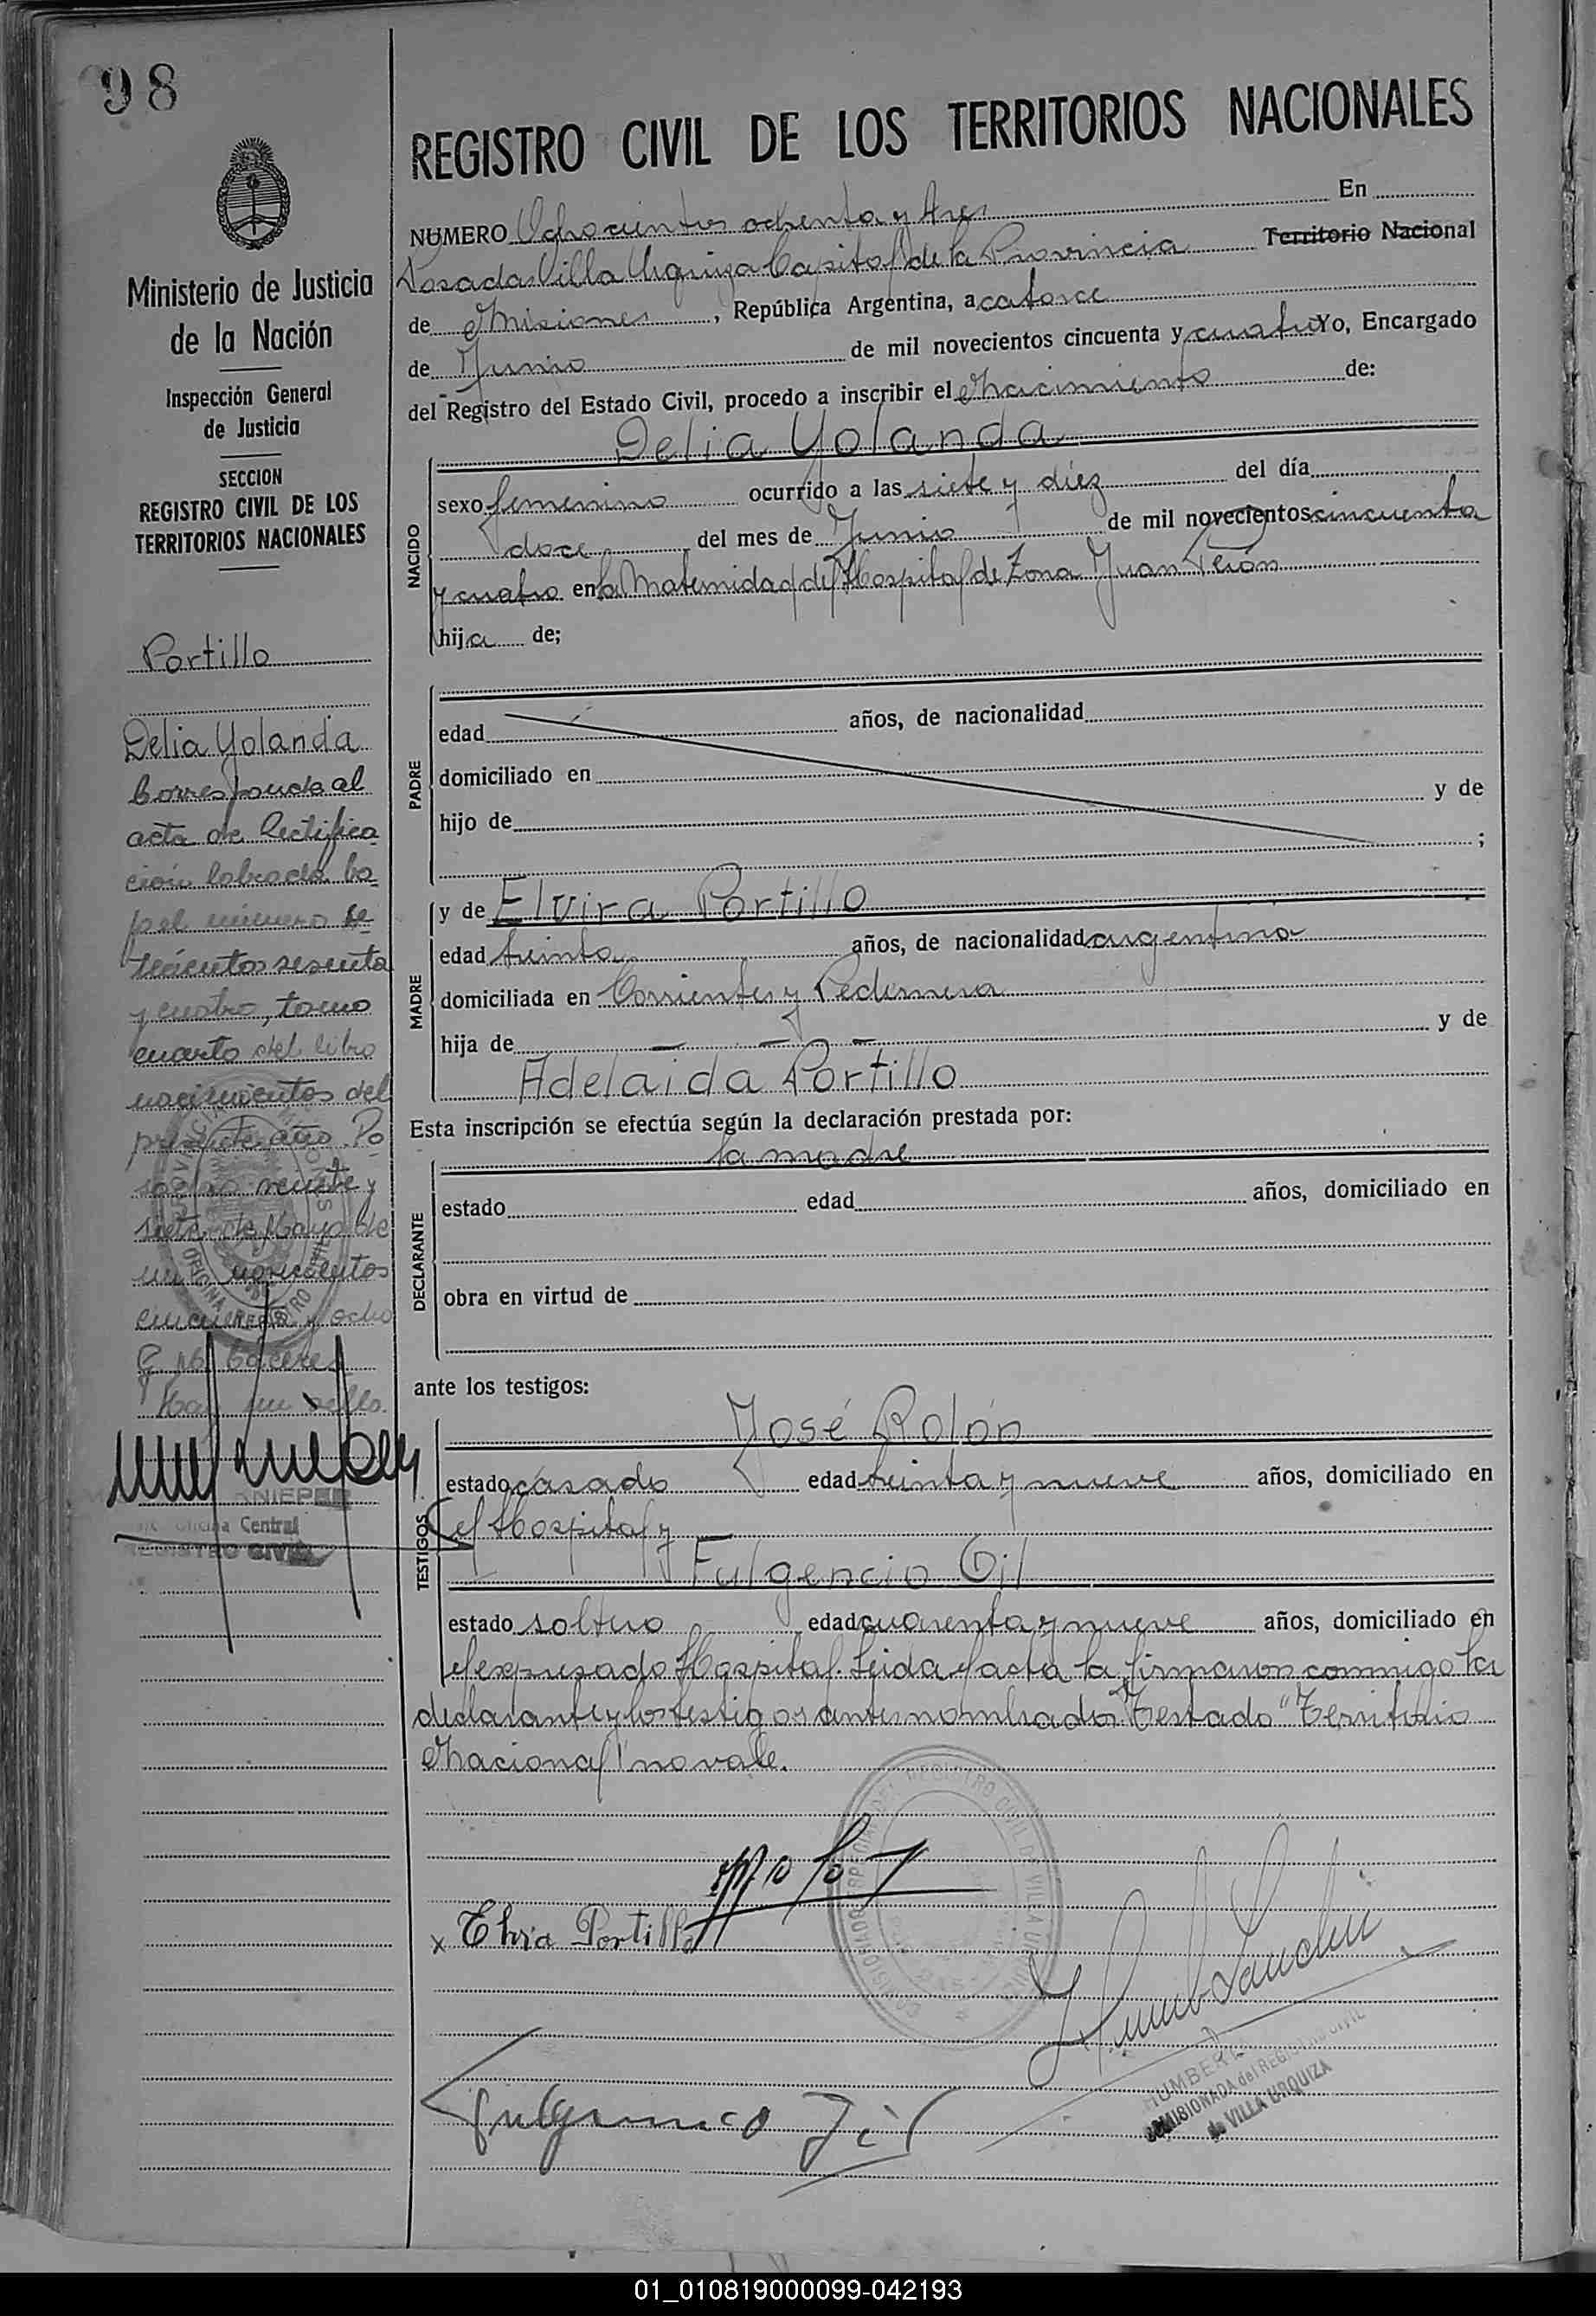 98
Ministerio de Justicia
de la Nación
Inspección General
de Justicia
SECCION
REGISTRO CIVIL DE LOS
TERRITORIOS NACIONALES
Portillo
Delia Yolanda
Corresponde al
acta de Rectifica
ción labrada ba
jo el número se
tecientos sesenta
y cuatro, tomo
cuarto del libro
nacimientos del
presente año. Po
sadas veinte y
siete de Mayo de
mil novecientos
cincuenta y ocho
Hay un sello.
Oficina Central
REGISTRO CIVIL
REGISTRO CIVIL DE LOS TERRITORIOS NACIONALES
NUMERO Ochocientos ochenta y tres En
Posadas Villa Urquiza Capital de la Provincia Territorio Nacional
de Misiones, República Argentina, a catorce
de Junio de mil novecientos cincuenta y cuatro Yo, Encargado
del Registro del Estado Civil, procedo a inscribir el Nacimiento de:
NACIDO
Delia Yolanda
sexo femenino ocurrido a las siete y diez del día
doce, del mes de Junio de mil novecientos cincuenta
y cuatro en la Maternidad del Hospital de Zona Juan Perón
hija de;
PADRE
edad años, de nacionalidad
domiciliado en
hijo de y de
;
MADRE
y de Elvira Portillo
edad treinta años, de nacionalidad argentina
domiciliada en Corrientes y Pedernera
hija de — — — y de
Adelaida Portillo
Esta inscripción se efectúa según la declaración prestada por:
DECLARANTE
la madre
estado edad años, domiciliado en
obra en virtud de
ante los testigos:
TESTIGOS
José Rolón
estado casado edad treinta y nueve años, domiciliado en
el Hospital y
Fulgencio Gil
estado soltero edad cuarenta y nueve años, domiciliado en
el expresado Hospital. Leida el acta la firmaron conmigo la
declarante y los testigos antes nombrados. Testado "Territorio
Nacional" no vale.
x Elvira Portillo
Fulgencio Gil
HUMBERTO
COMISIONADA del REGISTRO CIVIL
de VILLA URQUIZA
01_010819000099-042193